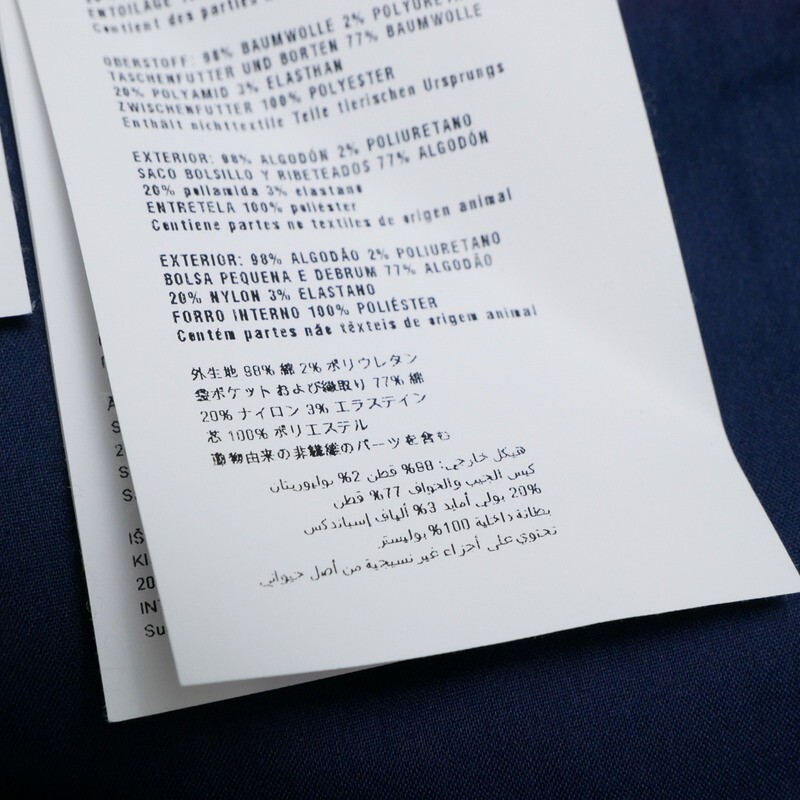 ENTOILAGE
Contient des parties n
OBERSTOFF: 98% BAUMWOLLE 2% POLYURETAN
TASCHENFUTTER UND BORTEN 77% BAUMWOLLE
20% POLYAMID 3% ELASTHAN
ZWISCHENFUTTER 100% POLYESTER
Enthält nichttextile Teile tierischen Ursprungs
EXTERIOR: 98% ALGODÓN 2% POLIURETANO
SACO BOLSILLO Y RIBETEADOS 77% ALGODÓN
20% poliamida 3% elastano
ENTRETELA 100% poliéster
Contiene partes no textiles de origen animal
EXTERIOR: 98% ALGODÃO 2% POLIURETANO
BOLSA PEQUENA E DEBRUM 77% ALGODÃO
20% NYLON 3% ELASTANO
FORRO INTERNO 100% POLIÉSTER
Contém partes não têxteis de origem animal
外生地 98% 綿 2% ポリウレタン
袋ポケットおよび縁取り 77% 綿
20% ナイロン 3% エラステイン
芯 100% ポリエステル
動物由来の非繊維のパーツを含む
هيكل خارجي: 98% قطن 2% بوليوريتان
كيس الجيب والحواف 77% قطن
20% بولي أمايد 3% ألياف إسباندكس
بطانة داخلية 100% بوليستر
تحتوي على أجزاء غير نسيجية من أصل حيواني
IŠ
KI
20
INT
Su